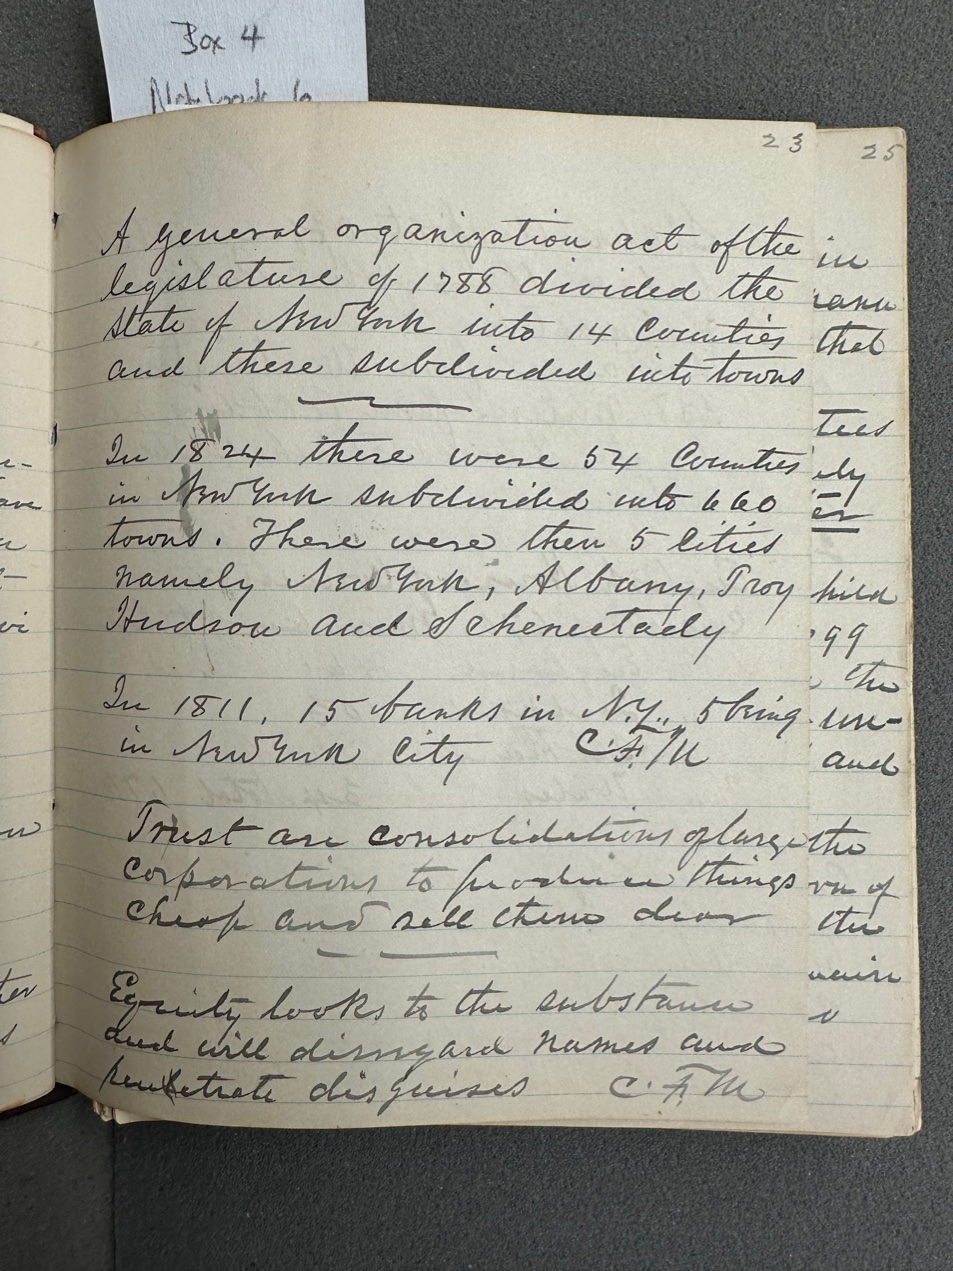 Box 4
Notebook 6
23
A general organization act of the
legislature of 1788 divided the
state of New York into 14 Counties
and these subdivided into towns
In 1824 there were 54 Counties
in New York subdivided into 660
towns. There were then 5 Cities
namely New York, Albany, Troy
Hudson and Schenectady
In 1811, 15 banks in N.Y., 5 being
in New York City C.F.M
Trust are consolidations of large
corporations to produce things
cheap and sell them dear
Equity looks to the substance
and will disregard names and
penetrate disguises C.F.M
25
in
that
tees
ely
hild
99
the
un-
and
the
on of
the